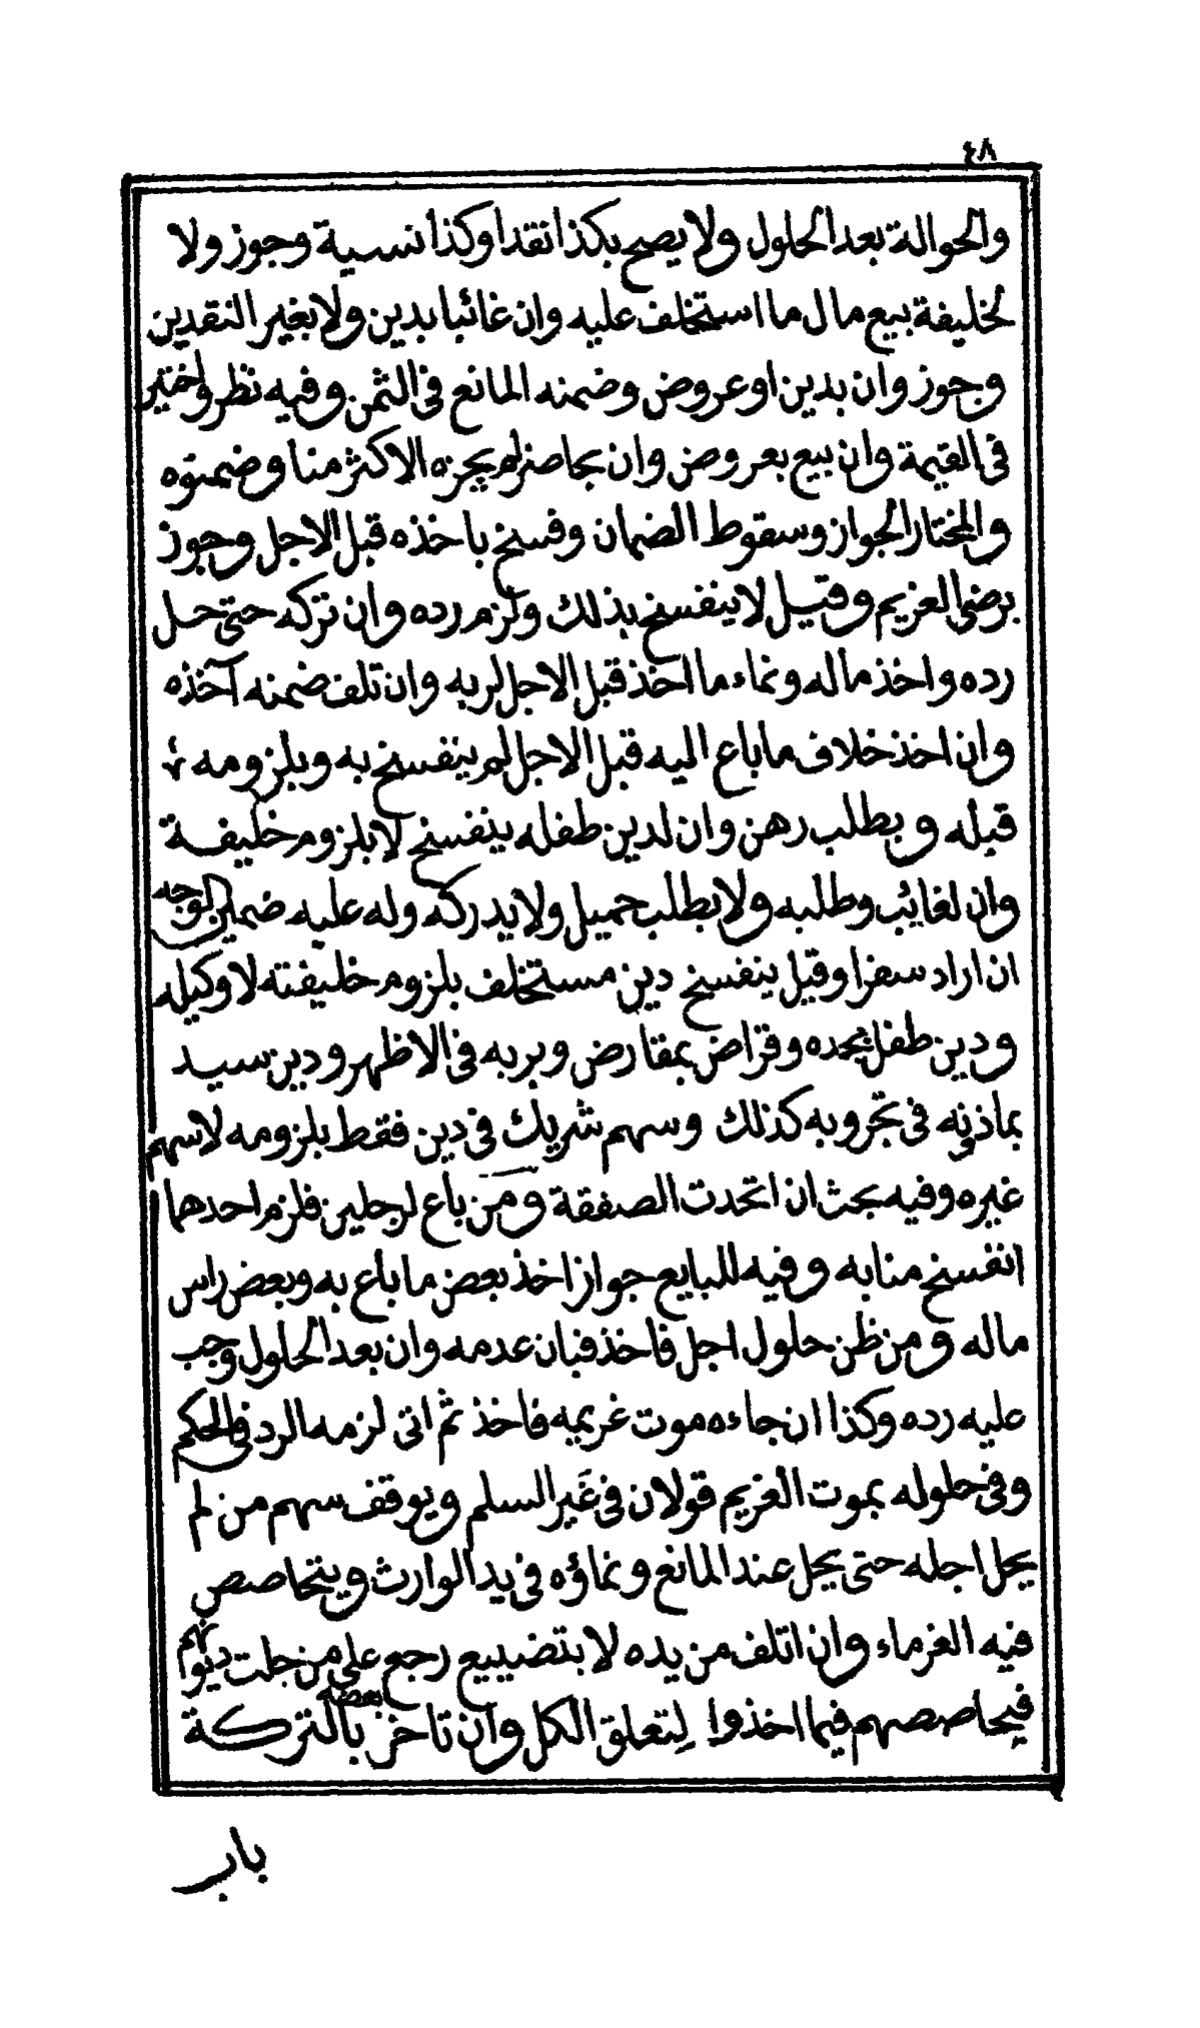 ٤٨
والحوالة بعد الحلول ولا يصح بكذا نقدا وكذا نسية وجوز ولا
لخليفة بيع مال ما استخلف عليه وان غائبا بدين ولا بغير النقدين
وجوز وان بدين او عروض وضمنه المانع فى الثمن وفيه نظر واختير
فى القيمة وان بيع بعروض وان بحاضر لم يجزه الاكثر منا وضمنوه
والمختار الجواز وسقوط الضمان وفسخ باخذه قبل الاجل وجوز
برضى الغريم وقيل لا ينفسخ بذلك ولزم رده وان تركه حتى حل
رده واخذ ماله ونماء ما اخذ قبل الاجل لربه وان تلف ضمنه آخذه
وان اخذ خلاف ما باع اليه قبل الاجل لم ينفسخ به ويلزومه
قبله وبطلب رهن وان لدين طفله ينفسخ لا بلزوم خليفة
وان لغائب وطلبه ولا بطلب حميل ولا يدركه وله عليه ضمين الوجه
ان اراد سفرا وقيل ينفسخ دين مستخلف بلزوم خليفته لا وكيله
ودين طفل بجده وقراض بمقارض وبربه فى الاظهر ودين سيد
بماذونه فى تجر وبه كذلك وسهم شريك فى دين فقط بلزومه لا سهم
غيره وفيه بحث ان اتحدت الصفقة ومن باع لرجلين فلزم احدهما
انفسخ منابه وفيه للبايع جواز اخذ بعض ما باع به وبعض راس
ماله ومن ظن حلول اجل فاخذ فبان عدمه وان بعد الحلول وجب
عليه رده وكذا ان جاءه موت غريمه فاخذ ثم اتى لزمه الرد فى الحكم
وفى حلوله بموت الغريم قولان فى غير السلم ويوقف سهم من لم
يحل اجله حتى يحل عند المانع ونماؤه فى يد الوارث ويتحاصص
فيه الغرماء وان اتلف من يده لا بتضييع رجع على من حلت ديونهم
فيحاصصهم فيما اخذوا لتعلق الكل وان تاخر بعضه بالتركة
باب